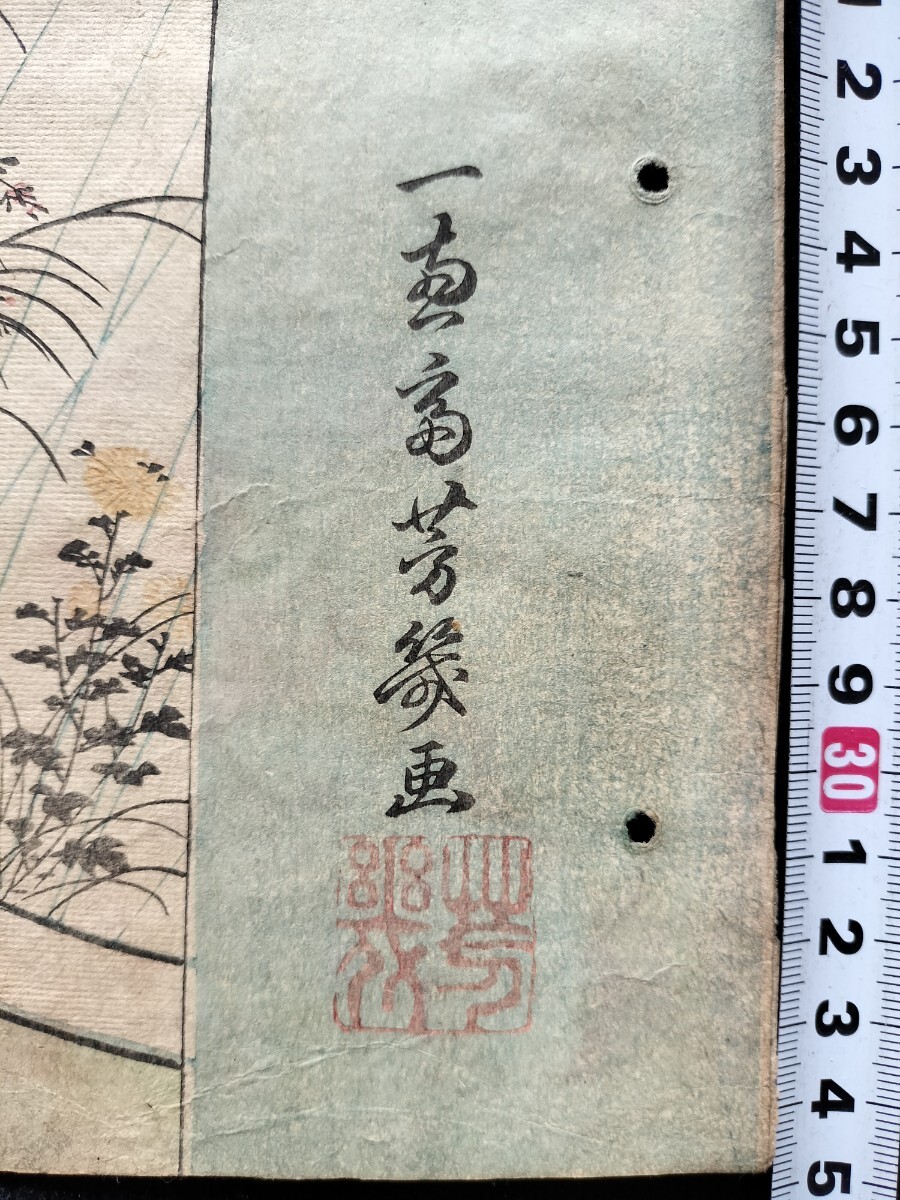 一恵斎芳幾画
芳幾
2
3
4
5
6
7
8
9
30
1
2
3
4
5